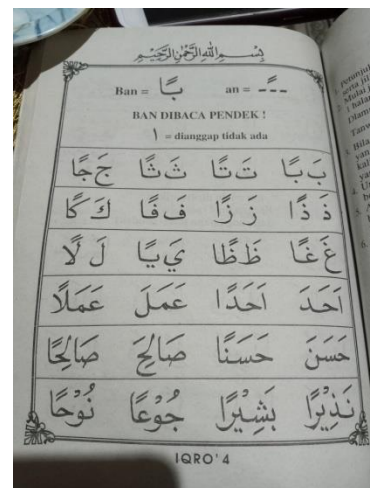 بِسْمِ اللهِ الرَّحْمٰنِ الرَّحِيْمِ
Ban = بًا an = ـًـ
BAN DIBACA PENDEK !
١ = dianggap tidak ada
بَ بًا تَ تًا ثَ ثًا جَ جًا
ذَ ذًا زَ زًا فَ فًا كَ كًا
غَ غًا ظَ ظًا يَ يًا لَ لًا
اَحَدَ اَحَدًا عَمَلَ عَمَلًا
حَسَنَ حَسَنًا صَالِحَ صَالِحًا
نَذِيْرًا بَشِيْرًا جُوْعًا نُوْحًا
IQRO' 4